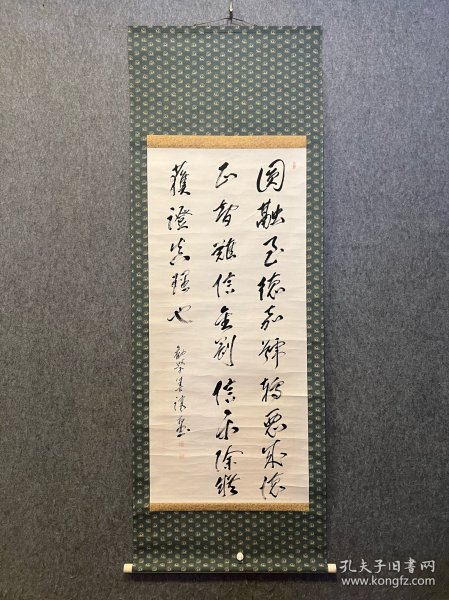 圓融至徳嘉號轉悪成徳
正智難信金剛信樂除疑
獲證真理也
勧學善譲
孔夫子旧书网
www.kongfz.com